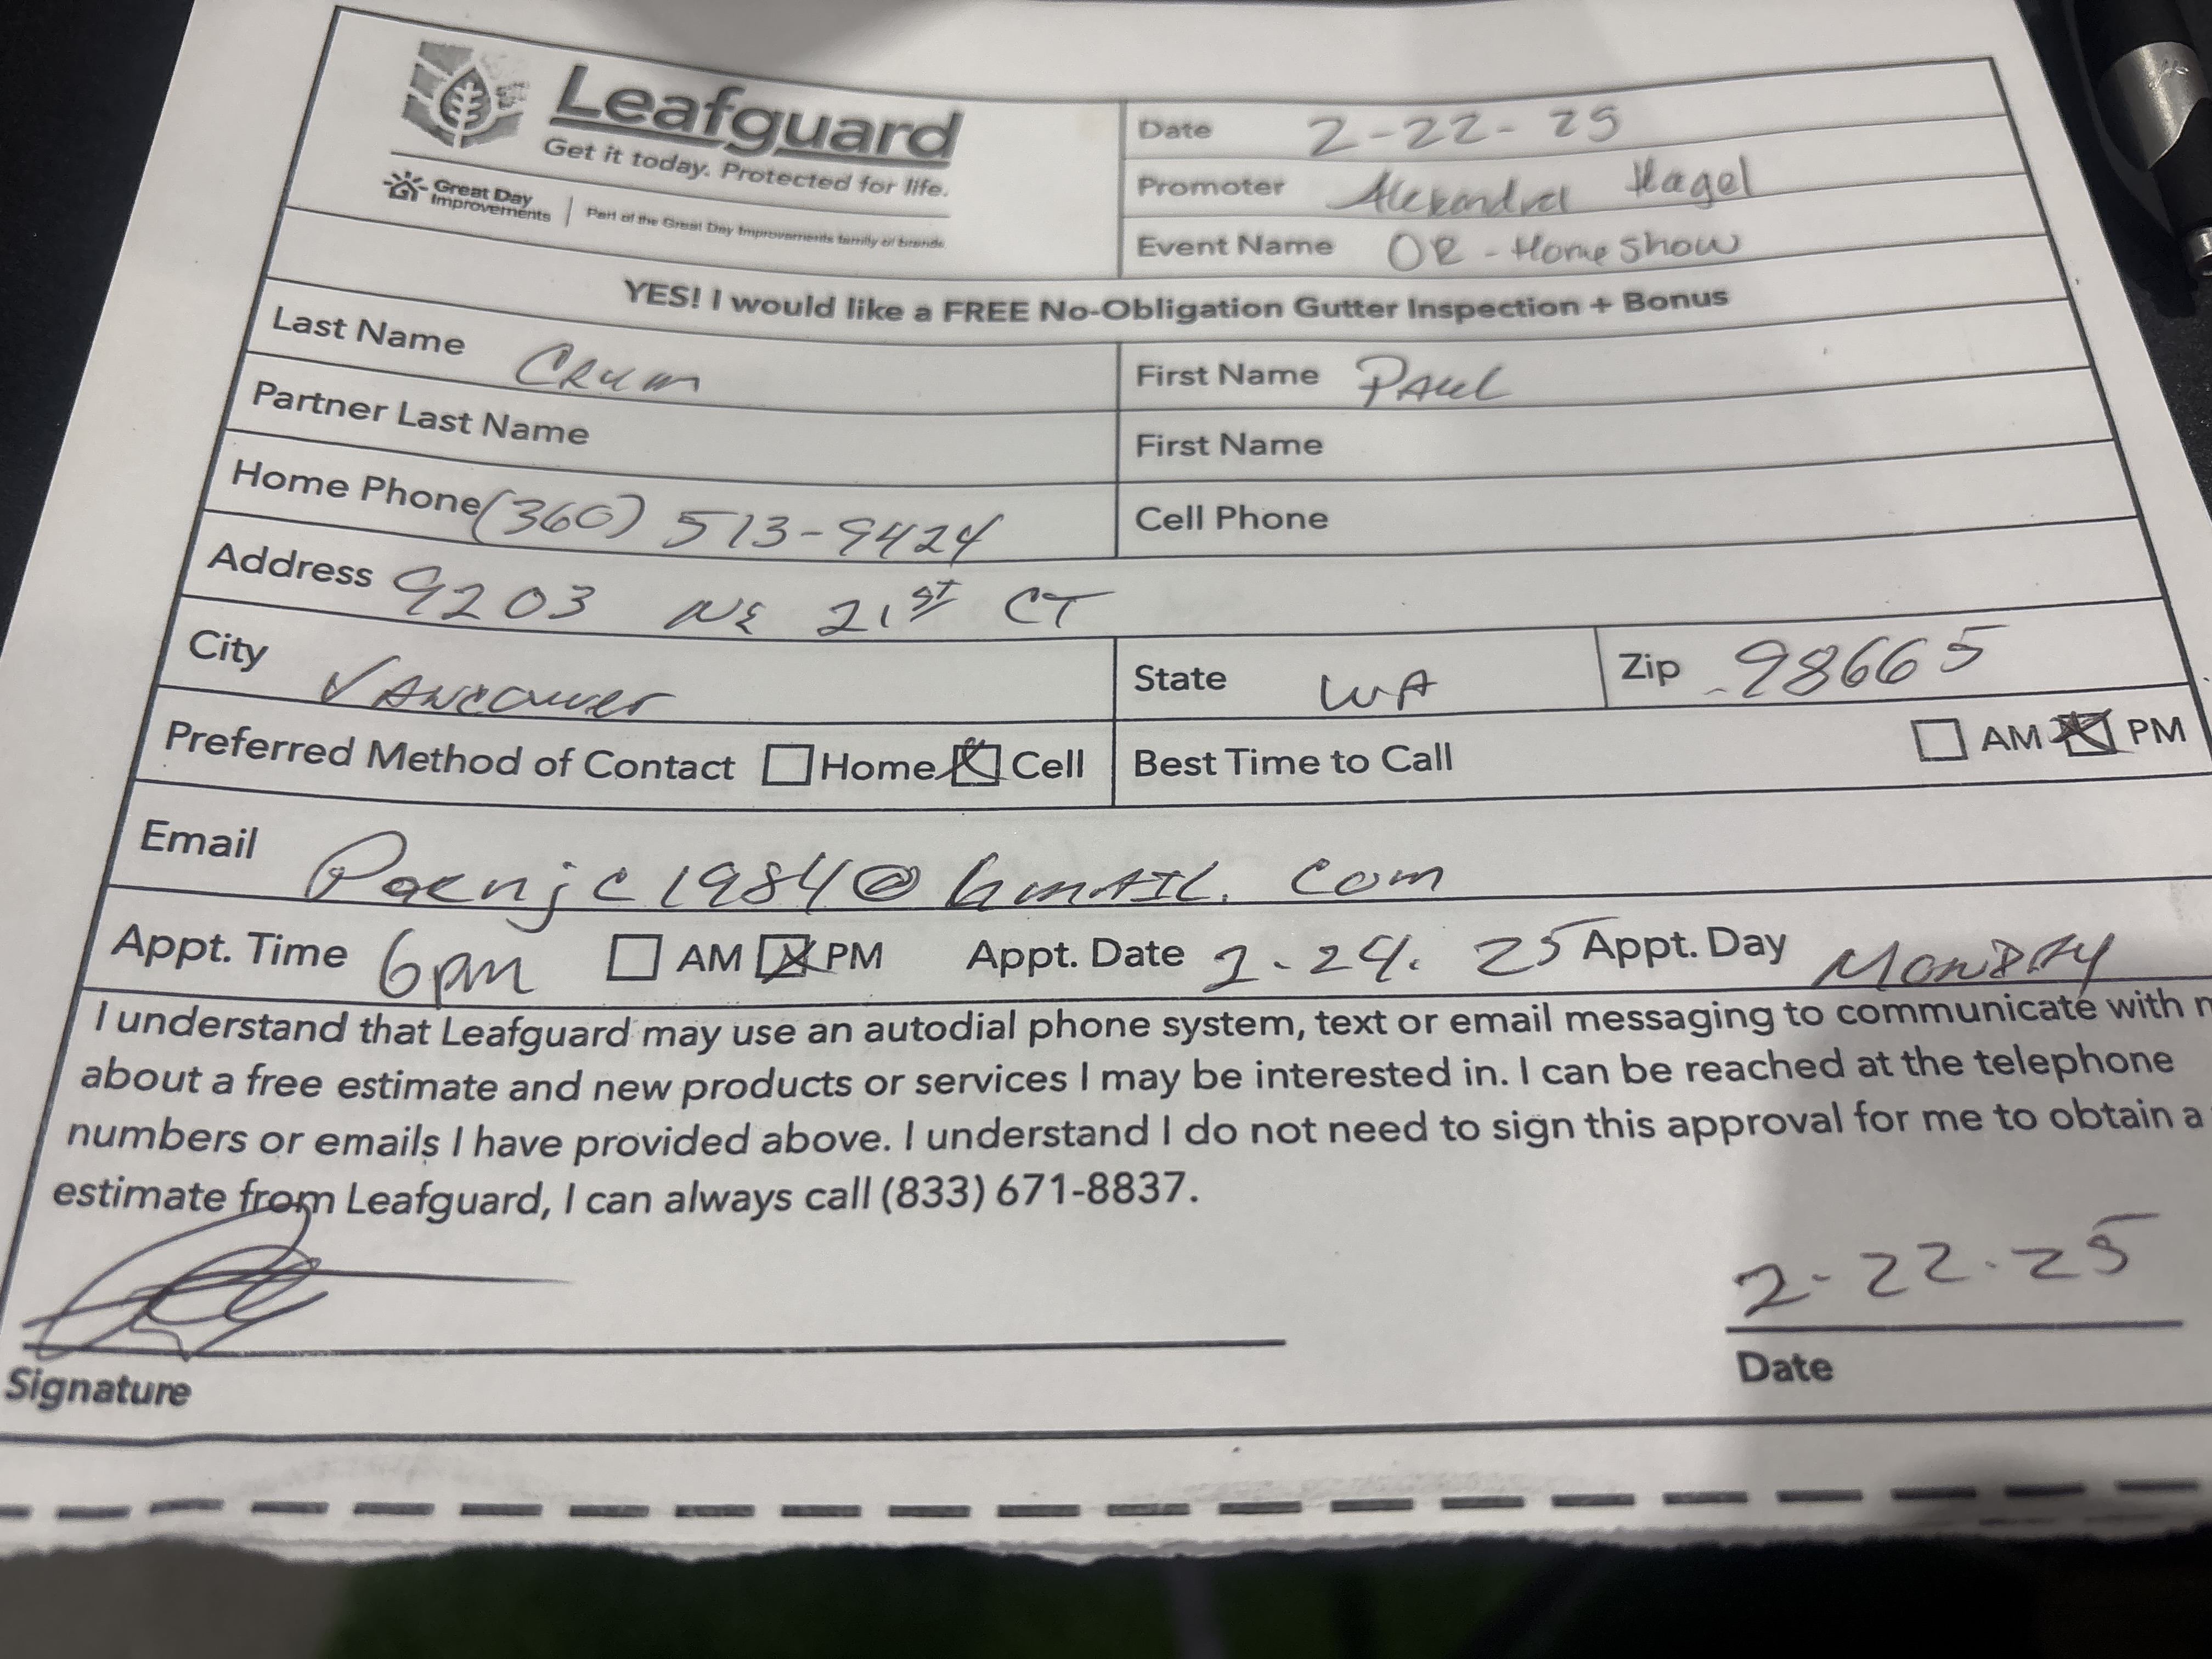 Leafguard
Get it today. Protected for life.
Great Day Improvements | Part of the Great Day Improvements family of brands
Date 2-22-25
Promoter Hagel
Event Name OR - Home Show
YES! I would like a FREE No-Obligation Gutter Inspection + Bonus
Last Name Crum First Name Paul
Partner Last Name First Name
Home Phone (360) 513-9424 Cell Phone
Address 9203 NE 21st CT
City Vancouver State WA Zip 98665
Preferred Method of Contact ☐ Home ☒ Cell Best Time to Call ☐ AM ☒ PM
Email
Appt. Time 6pm ☐ AM ☒ PM Appt. Date 2.24.25 Appt. Day Monday
I understand that Leafguard may use an autodial phone system, text or email messaging to communicate with
about a free estimate and new products or services I may be interested in. I can be reached at the telephone
numbers or emails I have provided above. I understand I do not need to sign this approval for me to obtain a
estimate from Leafguard, I can always call (833) 671-8837.
2.22.25
Signature Date